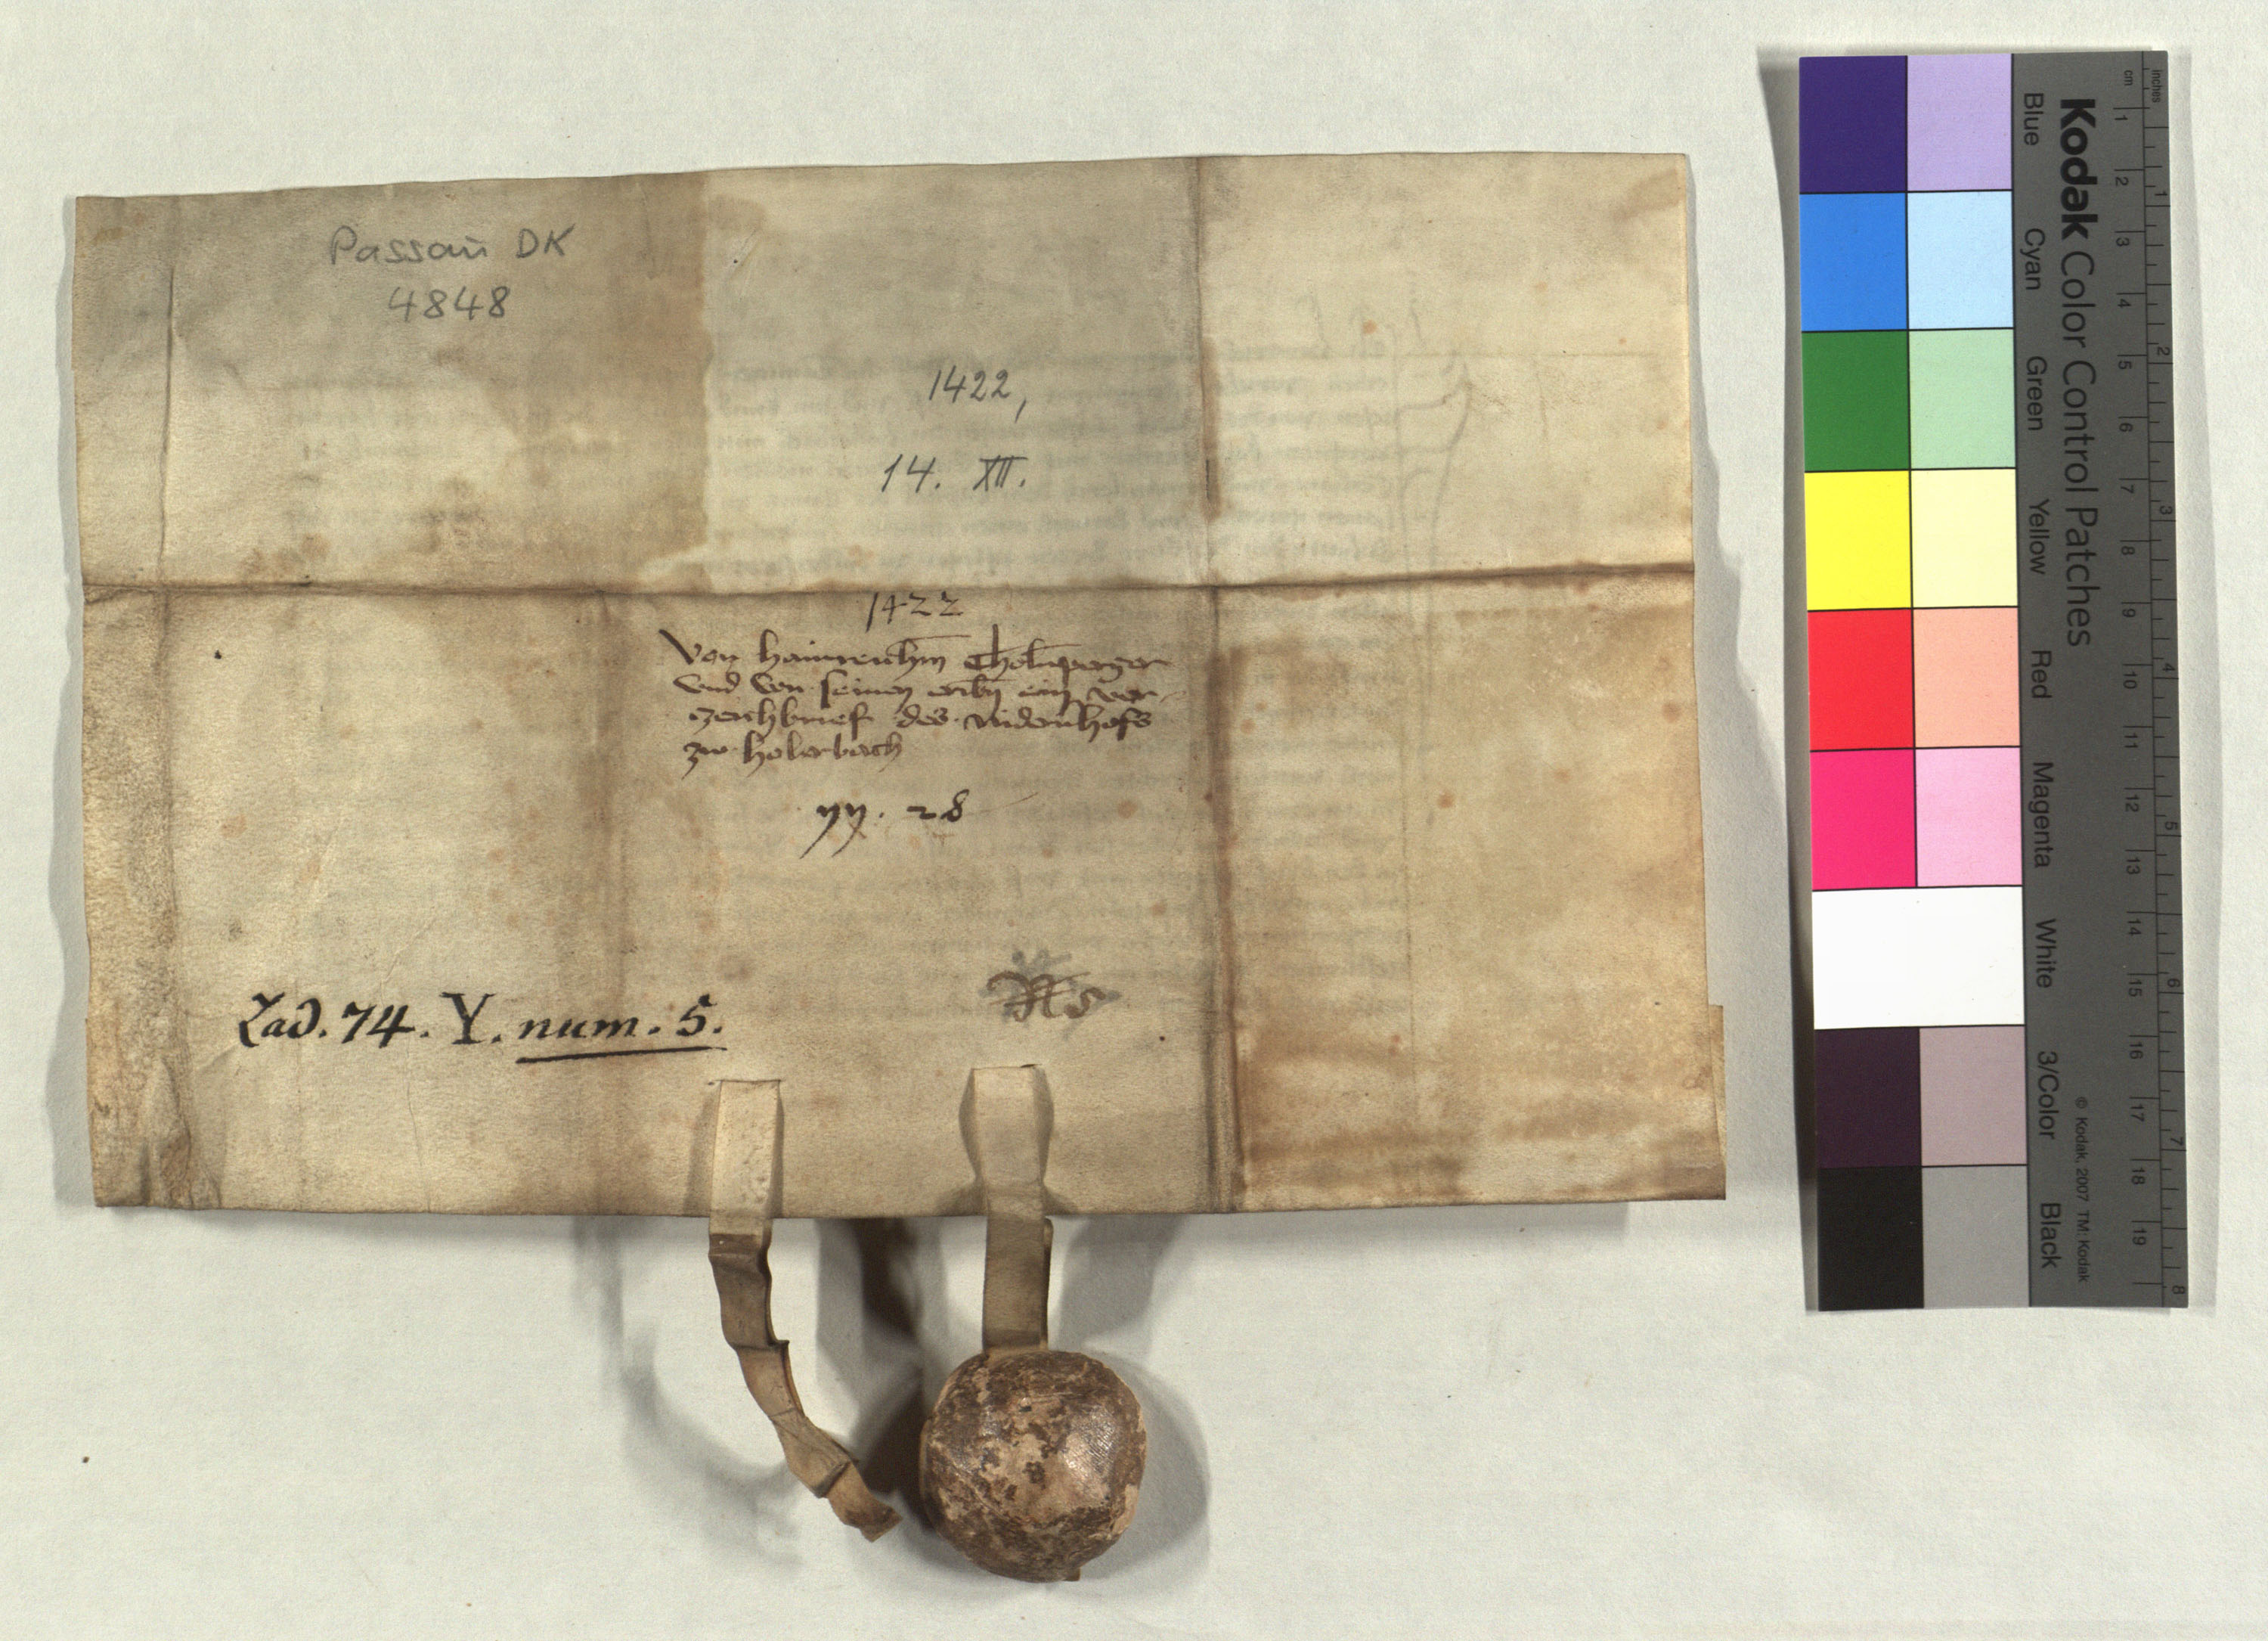 Passau DK
4848
1422,
14. XII.
1422
Von hainreichn̄
vnd von seinen eribn̄ ein ver-
zeichbrief des nidernhofs
zw holerbach
yy. 28
Lad. 74. Y. num. 5.
Kodak Color Control Patches
Blue Cyan Green Yellow Red Magenta White 3/Color Black
© Kodak, 2007 TM: Kodak
cm 1 2 3 4 5 6 7 8 9 10 11 12 13 14 15 16 17 18 19
inches 1 2 3 4 5 6 7 8